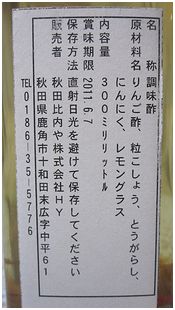 名称 調味酢
原材料名 りんご酢、粒こしょう、とうがらし、
にんにく、レモングラス
内容量 300ミリリットル
賞味期限 2011.6.7
保存方法 直射日光を避けて保存してください
販売者 秋田比内や株式会社HY
秋田県鹿角市十和田末広字中平61
TEL0186-35-5776